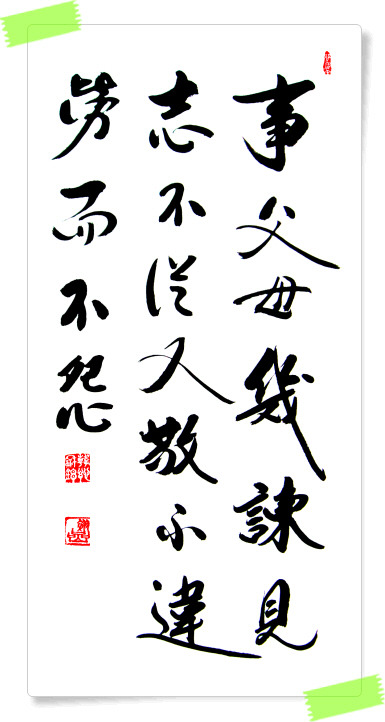 事父母幾諫見
志不從又敬不違
勞而不怨